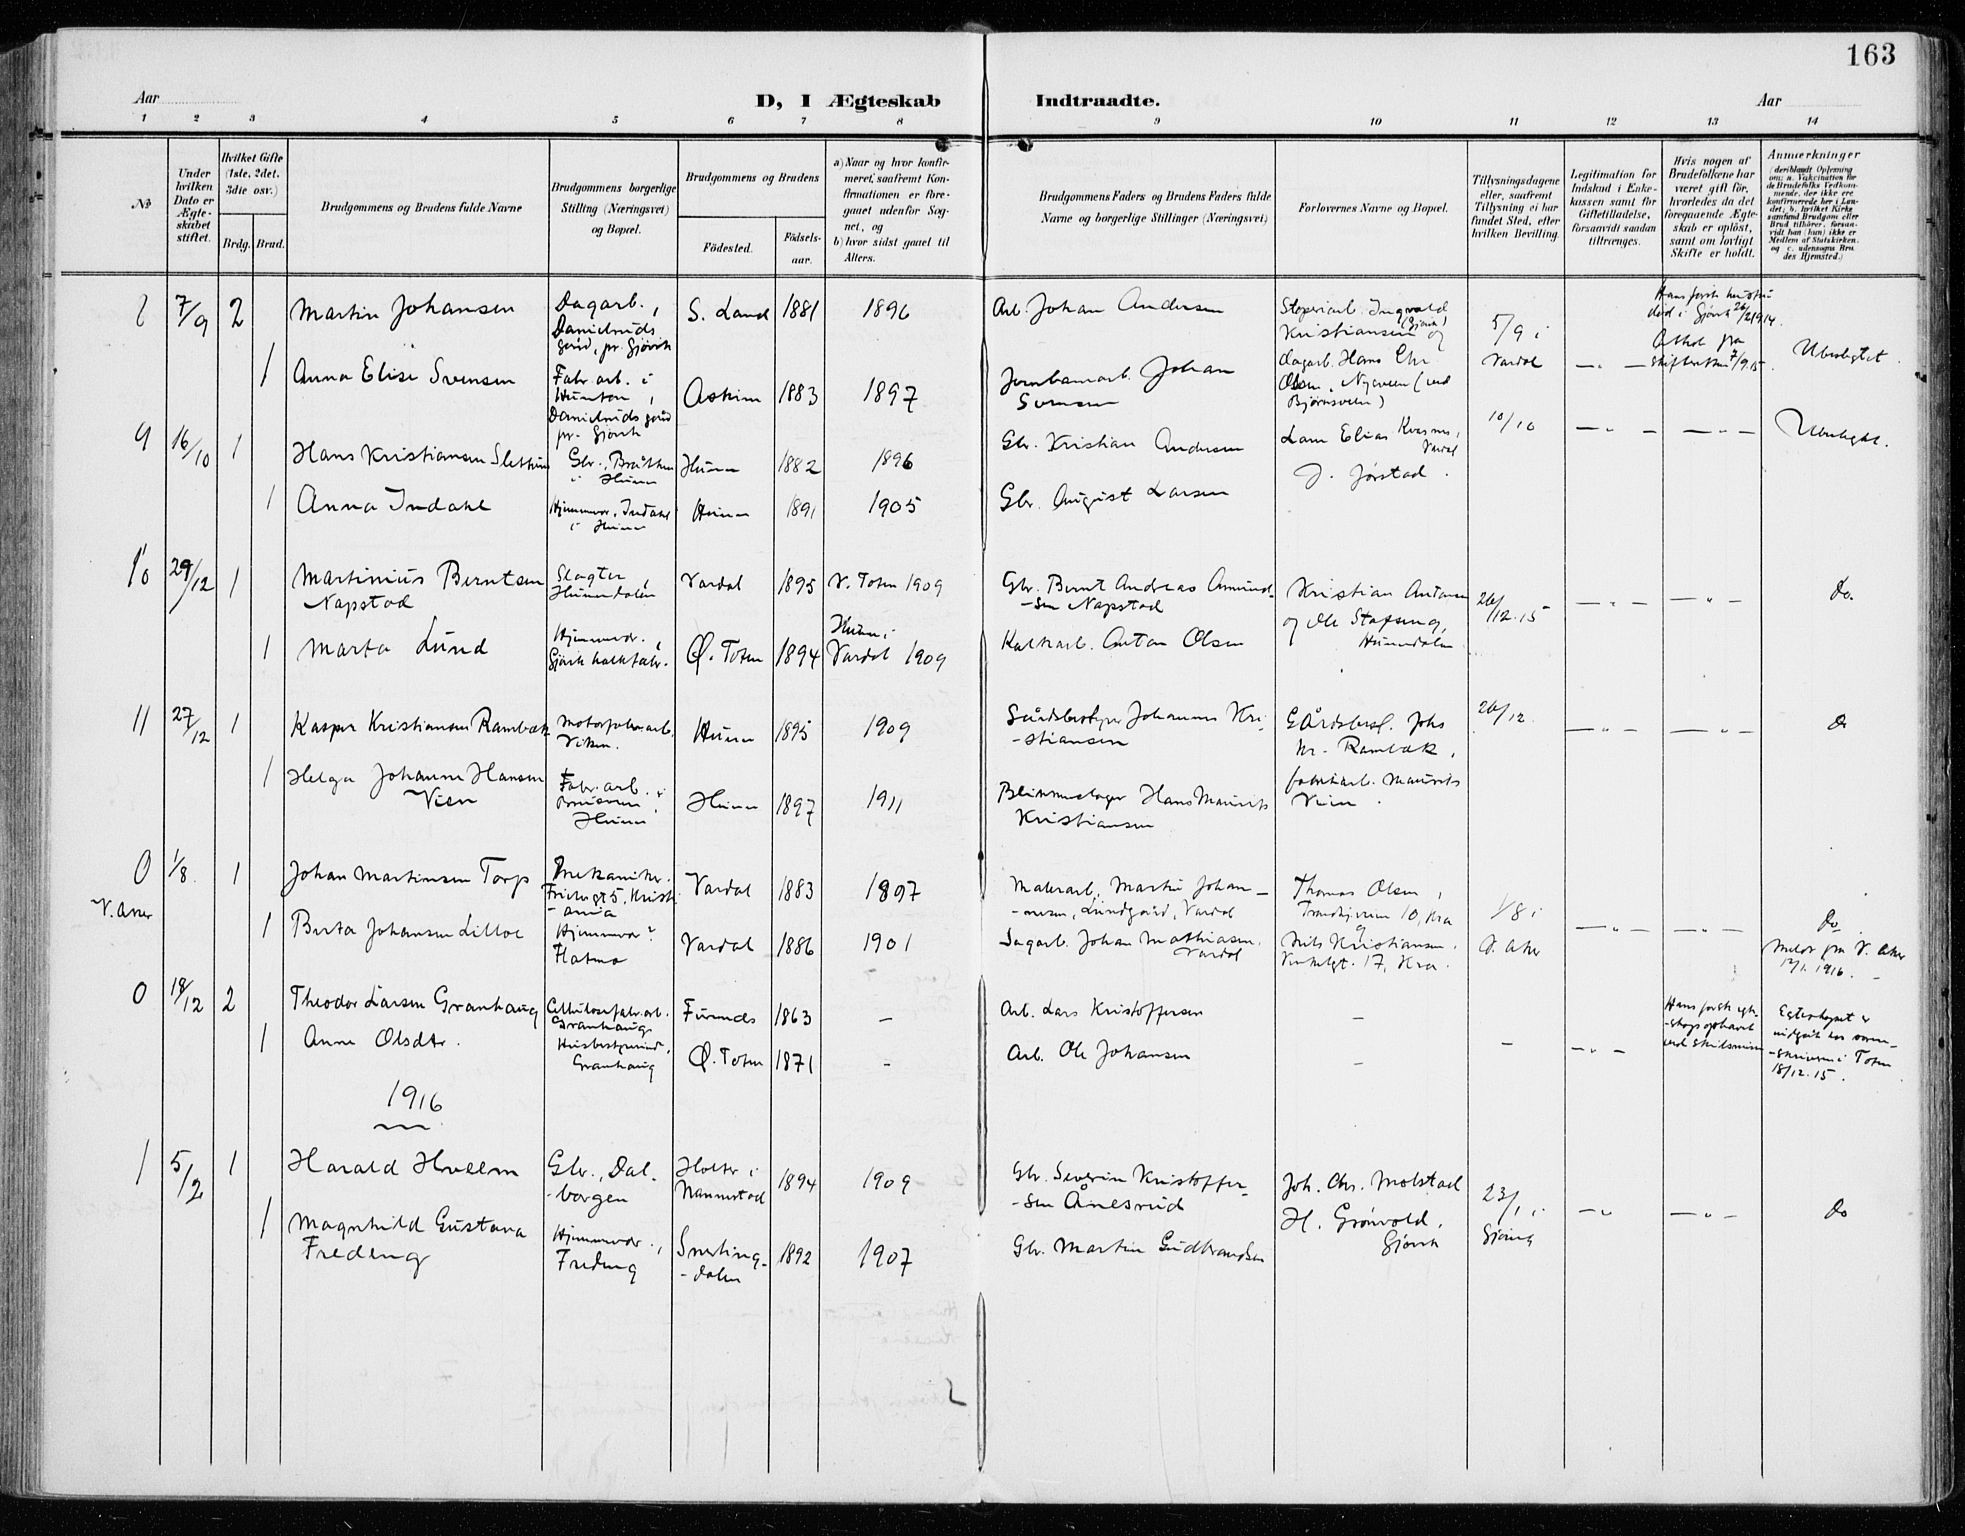 163
Aar
D, I Ægteskab Indtraadte.
Aar
1 2 3 4 5 6 7 8 9 10 11 12 13 14
No
Under hvilken Dato er Ægteskabet stiftet.
Hvilket Gifte (1ste, 2det, 3die osv.)
Brdg. Brud.
Brudgommens og Brudens fulde Navne
Brudgommens borgerlige Stilling (Næringsvei) og Bopæl.
Brudgommens og Brudens
Fødested.
Födsels-aar.
a) Naar og hvor konfirmeret, saafremt Konfirmationen er foregaaet udenfor Sognet, og
b) hvor sidst gaaet til Alters.
Brudgommens Faders og Brudens Faders fulde Navne og borgerlige Stillinger (Næringsvei)
Forlovernes Navne og Bopæl.
Tillysningsdagene eller, saafremt Tillysning ei har fundet Sted, efter hvilken Bevilling
Legitimation for Indskud i Enkekassen samt for Giftetilladelse, forsaavidt saadan tiltrænges.
Hvis nogen af Brudefolkene har været gift før, hvorledes da det foregaaende Ægteskab er opløst, samt om lovligt Skifte er holdt.
Anmerkninger
8 7/9 2 Martin Johansen
Dagarb., Danielruds gaard, pr. Gjøvik
S. Land 1881 1896
Arb. Johan Andersen
Støperiarb. Ingvald Kristiansen (Gjøvik) og
5/9 i Vardal
1 Anna Elise Svensen
Fabr.arb. i Hunton, Danielruds gaard pr. Gjøvik
Askim 1883 1897
Jernbanearb. Johan Svensen
dagarb. Hans Chr. Olsen, Nyveien (ved Bjørnsveen)
Ubeslægtet.
9 16/10 1 Hans Kristiansen
Gbr., Bratten i Hunn
Hunn 1882 1896
Gbr. Kristian Andersen
Lars Elias
Vardal
10/10
1 Anna Indahl
Hjemmev., Indahl i Hunn
Hunn 1891 1905
Gbr. August Larsen
J. Jørstad.
10 29/12 1 Martinius Berntsen Napstad
Slagter, Hunndalen
Vardal 1895 V. Toten 1909
Gbr. Bernt Andreas Amundsen Napstad
Kristian Antonsen og Ole
Hunndalen
26/12.15
Do.
1 Marta Lund
Hjemmev., Gjøvik kalkfabr.
Ø. Toten 1894 Hunn i Vardal 1909
Kalkarb. Anton Olsen
11 27/12 1 Kasper Kristiansen Rambæk
Motorfabr.arb. Viken.
Hunn 1895 1909
Gårdsbestyrer Johannes Kristiansen
Gårdsbest. Johs Kr. Rambæk,
26/12.
Do
1 Helga Johanne Hansen Vien
Fabr.arb. i Hunn
Hunn 1897 1911
Blikkenslager Hans Maurits Kristiansen
fabrikarb. Maurits Vien.
0 V. Aker 1/8. 1 Johan Martinsen Torp
Mekaniker. 5, Kristiania
Vardal 1883 1897
Malerarb. Martin Johannesen, Lundgård, Vardal
Thomas Olsen, Trondhjemsvn 10, Kra
1/8 i V. Aker
1 Berta Johansen Lilloe
Hjemmev? Flatmo
Vardal 1886 1901
Sagarb. Johan Mathiasen. Vardal
og Nils Kristiansen. 17, Kra.
Do.
Meldt fra V. Aker 12/1. 1916.
0 18/12 2 Theodor Larsen Granhaug
Cellulosefabr.arb. Granhaug
Furnes 1863 -
Arb. Lars Kristoffersen
-
1 Anne Olsdtr.
Husbestyrerinde, Granhaug
Ø. Toten 1871 -
Arb. Ole Johansen
-
Hans første egteskap ophævet ved skilsmisse
Egteskapet er indgaat hos sorenskriveren i Toten 18/12.15.
1916
1 5/2 1 Harald Hveem
Gbr., Dalborgen
Holter i Nannestad 1894 1909
Gbr. Severin Kristoffersen Ånesrud
Joh. Chr. Molstad
23/1 i Gjøvik
Do
1 Magnhild Gustava Fredeng
Hjemmev., Fredeng
Snertingdalen 1892 1907
Gbr. Martin Gudbrandsen
H. Grønvold, Gjøvik